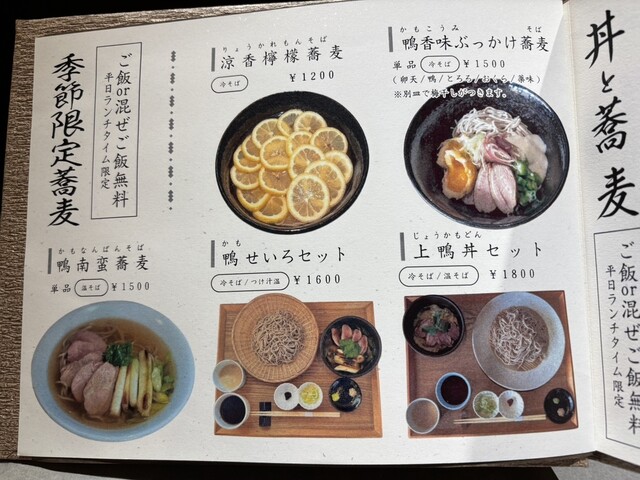 季節限定蕎麦
ご飯or混ぜご飯無料
平日ランチタイム限定
りょうかれもんそば
涼香檸檬蕎麦
冷そば ¥1200
かもこうみ そば
鴨香味ぶっかけ蕎麦
単品 冷そば ¥1500
(卵天/鴨/とろろ/おくら/薬味)
※別皿で梅干しがつきます。
かもなんばんそば
鴨南蛮蕎麦
単品 温そば ¥1500
かも
鴨せいろセット
冷そば/つけ汁温 ¥1600
じょうかもどん
上鴨丼セット
冷そば/温そば ¥1800
丼と蕎麦
ご飯or混ぜご飯無料
平日ランチタイム限定